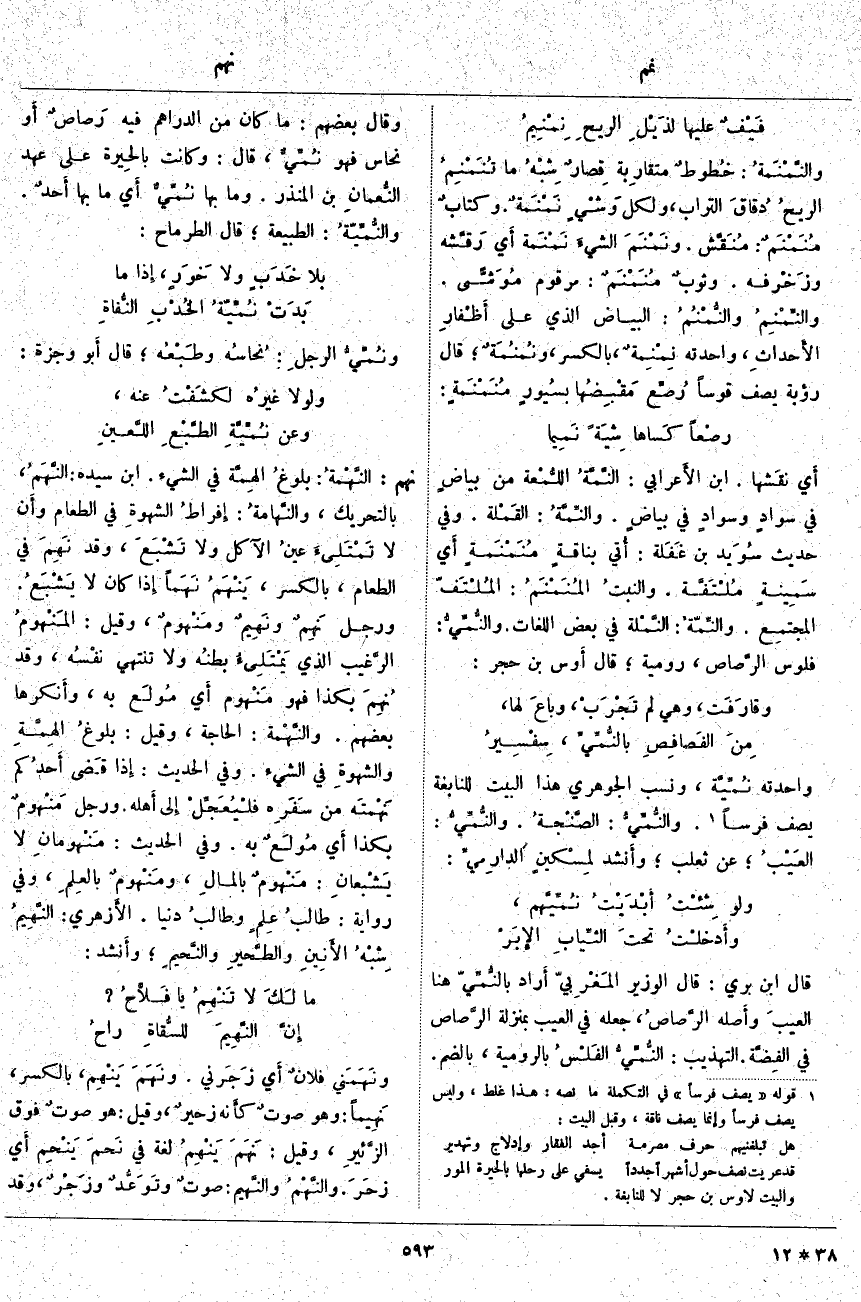 نمم
نهم
فَيْفٌ عليها لذَيْلِ الريحِ نِمْنِيمُ
والنَّمْنَمةُ : خُطوطٌ متقاربة قِصارٌ شِبْهُ ما تُنَمْنِمُ
الريحُ دُقاقَ التراب، ولكل وَشْيٍ نَمْنَمةٌ. وكتابٌ
مُنَمْنَمٌ : مُنَقَّش . ونَمْنَمَ الشيءَ نَمْنَمة أَي رَقَّشه
وزَخْرفه . وثوبٌ مُنَمْنَمٌ : مرقوم مُوَشَّى .
والنِّمْنِمُ والنُّمْنُمُ : البياض الذي على أَظْفارِ
الأَحداثِ ، واحدته نِمْنِمةٌ ،بالكسر، ونُمْنُمةٌ ؛ قال
رؤبة يصف قوساً رُصِّع مَقْبِضُها بسُيورٍ مُنَمْنَمةٍ :
رصْعاً كَساها شِيَةً نَمِيما
أَي نقَشها . ابن الأَعرابي : النِّمَّةُ اللُّمْعة من بياضٍ
في سوادٍ وسوادٍ في بياضٍ . والنِّمَّةُ : القَمْلة . وفي
حديث سُوَيد بن غَفَلة : أُتي بناقةٍ مُنَمْنَمةٍ أَي
سَمِينةٍ مُلْتَفَّة . والنبتُ المُنَمْنَمُ : المُلْتَفّ
المجتمِع . والنِّمّةُ: النَّمْلة في بعض اللغات. والنُّمِّيُّ :
فلوس الرَّصاص ، رومية ؛ قال أَوس بن حجر :
وقارَفَت، وهي لم تَجْرَبْ، وباعَ لها،
مِنَ الفَصافِصِ بالنُّمِّيِّ ، سِفْسِيرُ
واحدته نُمِّيَّة ، ونسب الجوهري هذا البيت للنابغة
يصف فرساً١ . والنُّمِّيُّ : الصَّنْجةُ . والنُّمِّيُّ :
العَيْبُ ؛ عن ثعلب ؛ وأَنشد لمِسْكينٍ الدارميّ :
ولو شِئْتُ أَبْدَيْتُ نُمِّيَّهم ،
وأَدخلْتُ تحتَ الثِّيابِ الإِبَرْ
قال ابن بري : قال الوزير المَغْربيّ أَراد بالنُّمِّيّ هنا
العيبَ وأَصله الرَّصاصُ، جعله في العيب بمنزلة الرَّصاص
في الفِضَّة. التهذيب : النُّمِّيُّ الفَلْسُ بالرومية ، بالضم.
١ قوله « يصف فرساً » في التكملة ما نصه : هذا غلط ، وليس
يصف فرساً وإنما يصف ناقة ، وقبل البيت :
هل تبلغنيهم حرف مصرمة أجد الفقار وإدلاج وتهدير
قد عريت نصف حول أشهراً جدداً يسفي على رحلها بالحيرة المور
والبيت لاوس بن حجر لا للنابغة .
وقال بعضهم : ما كان من الدراهم فيه رَصاصٌ أَو
نحاس فهو نُمِّيٌّ ، قال : وكانت بالحِيرة على عهد
النُّعمانِ بن المنذر . وما بها نُمِّيٌّ أَي ما بها أَحدٌ .
والنُّمِّيّةُ : الطبيعة ؛ قال الطرماح :
بلا خَدَبٍ ولا خَوَرٍ، إِذا ما
بَدَتْ نُمِّيّةُ الخُدْبِ النُّفاةِ
ونُمِّيُّ الرجلِ : نُحاسُه وطَبْعُه ؛ قال أَبو وجزة :
ولولا غيرُه لكشَفْتُ عنه ،
وعن نُمِّيَّةِ الطَّبْعِ اللَّعينِ
نهم : النَّهْمةُ : بلوغُ الهِمَّة في الشيء . ابن سيده: النَّهَمُ،
بالتحريك ، والنَّهامةُ : إِفراطُ الشهوةِ في الطعام وأَن
لا تَمْتَلِئَ عينُ الآكل ولا تَشْبَعَ ، وقد نَهِمَ في
الطعام ، بالكسر ، يَنْهَمُ نَهَماً إِذا كان لا يَشْبَعُ.
ورجل نَهِمٌ ونَهِيمٌ ومَنْهومٌ ، وقيل : المَنْهومُ
الرَّغيب الذي يَمْتَلئُ بطنُه ولا تنتهي نفْسُه ، وقد
نُهِمَ بكذا فهو مَنْهوم أَي مُولَع به ، وأَنكرها
بعضهم . والنَّهْمة : الحاجة ، وقيل : بلوغُ الهِمَّةِ
والشهوةِ في الشيء . وفي الحديث : إِذا قضى أَحدُكم
نَهْمَتَه من سفَرِه فلْيُعَجِّلْ إِلى أَهله. ورجل مَنْهومٌ
بكذا أَي مُولَعٌ به . وفي الحديث : مَنْهومان لا
يَشْبعان : مَنْهومٌ بالمال ، ومَنْهومٌ بالعلم ، وفي
رواية : طالبُ علمٍ وطالبُ دنيا . الأَزهري: النَّهِيمُ
شِبْهُ الأَنينِ والطَّحيرِ والنَّحيمِ ؛ وأَنشد :
ما لَكَ لا تَنْهِمُ يا فَلاّحُ ؟
إِنَّ النَّهِيمَ للسُّقاةِ راحُ
ونَهَمَني فلانٌ أَي زَجَرَني . ونَهَمَ يَنْهِم، بالكسر،
نَهِيماً: وهو صوتٌ كأَنه زحيرٌ ، وقيل: هو صوتٌ فوق
الزَّئيرِ ، وقيل : نَهَمَ يَنْهِمُ لغة في نَحَمَ يَنْحِم أَي
زحَرَ. والنَّهْمُ والنَّهيم: صوتٌ وتَوَعُّدٌ وزَجْرٌ، وقد
٣٨ * ١٢
٥٩٣